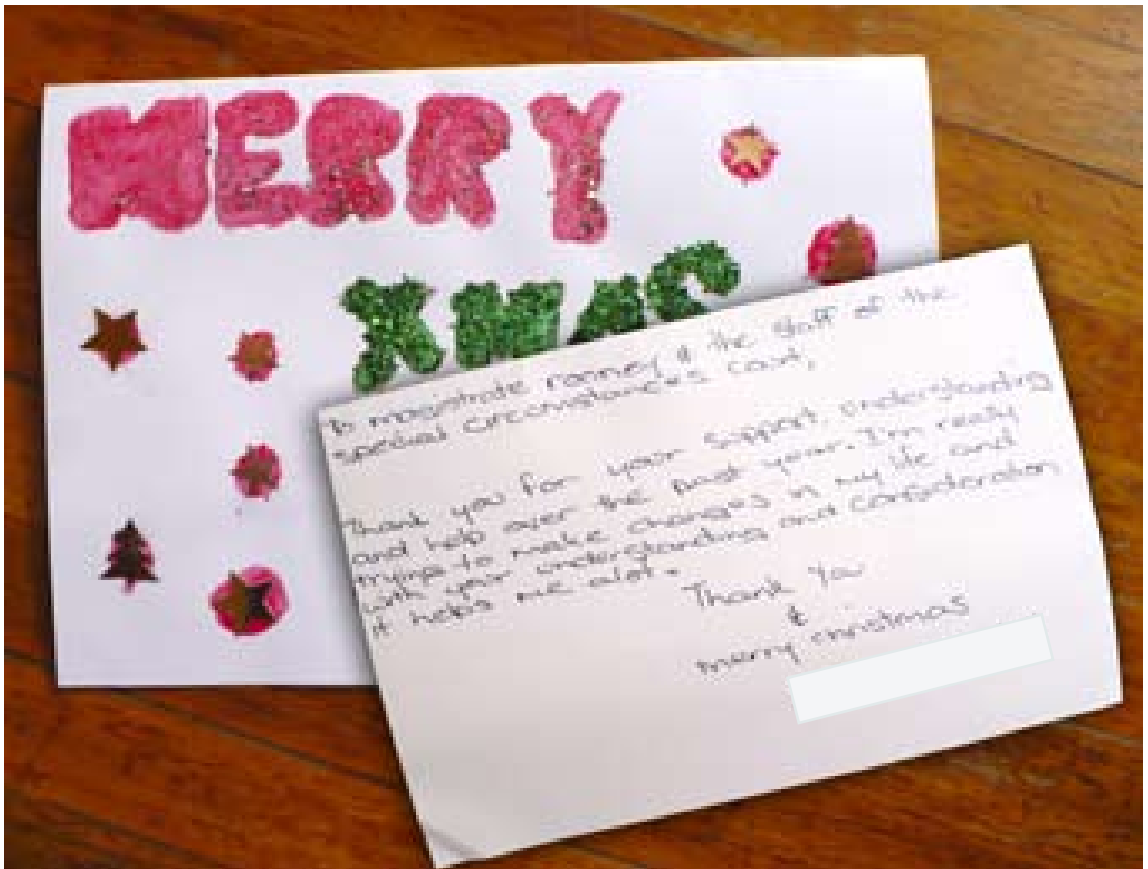 MERRY
XMAS
To magistrate ranney & the staff of the
special circumstances court,
Thank you for your support, understanding
and help over the past year. I'm really
trying to make changes in my life and
with your understanding and consideration
it helps me alot.
Thank You
&
merry christmas